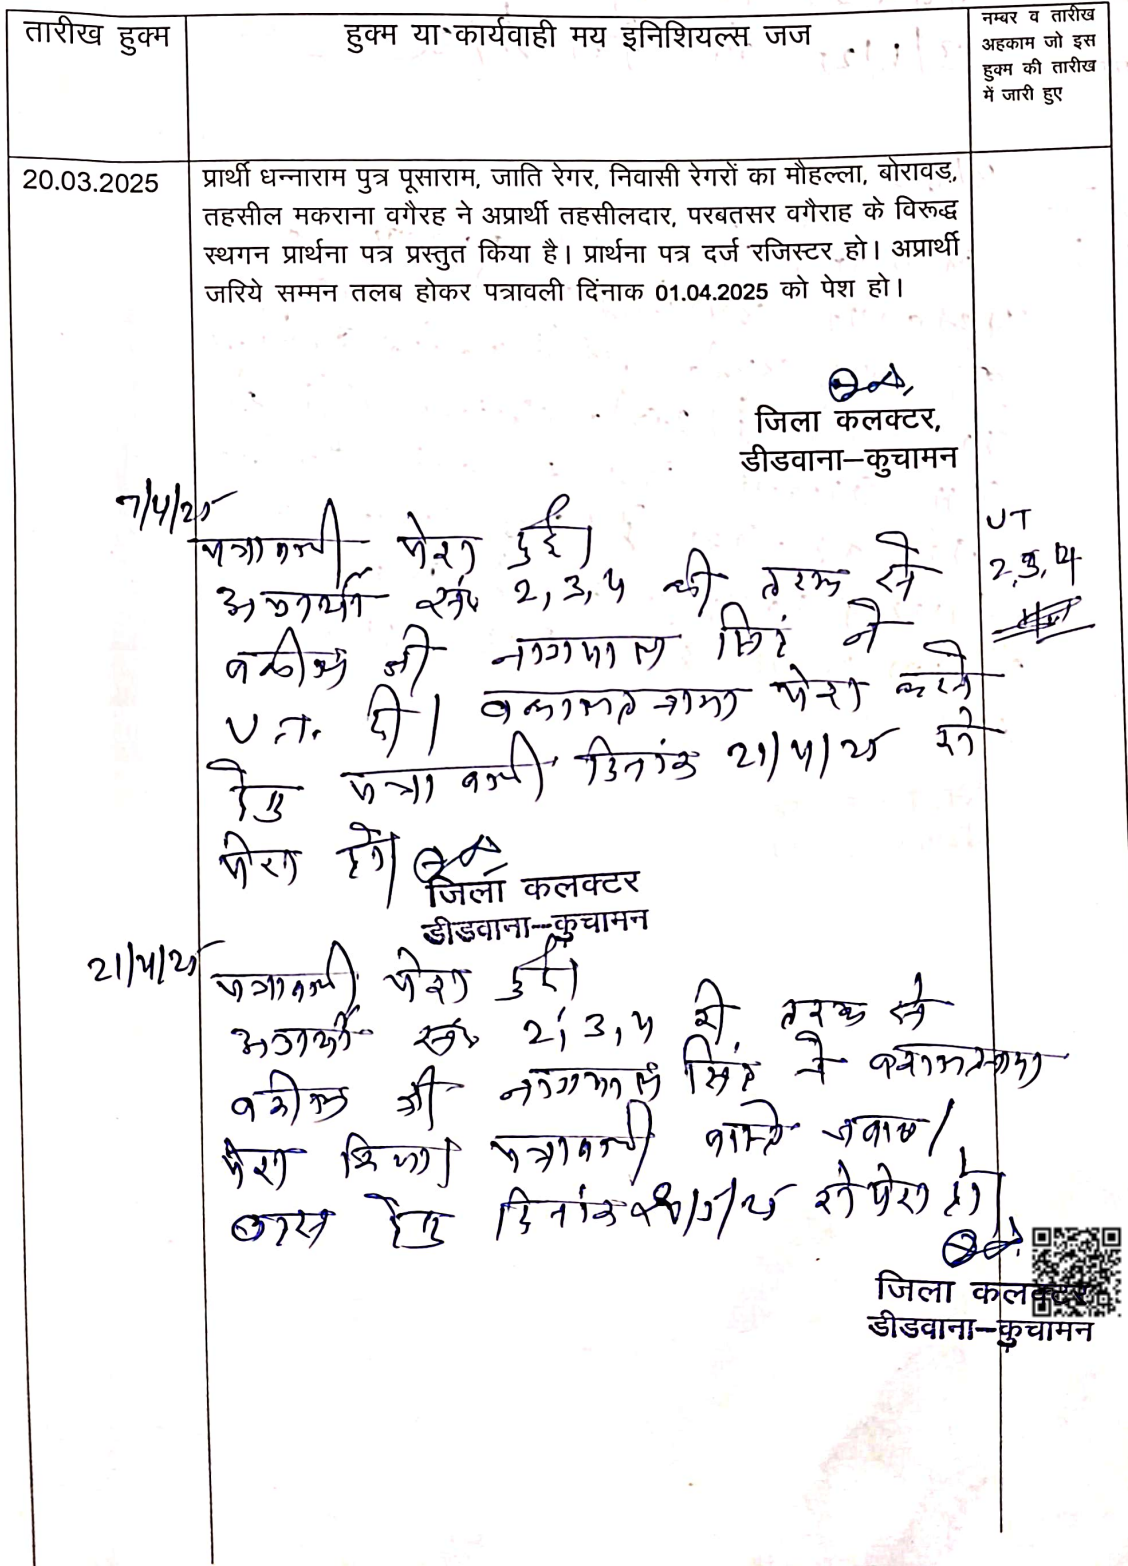 तारीख हुक्म
हुक्म या कार्यवाही मय इनिशियल्स जज
नम्बर व तारीख
अहकाम जो इस
हुक्म की तारीख
में जारी हुए
20.03.2025
प्रार्थी धन्नाराम पुत्र पूसाराम, जाति रेगर, निवासी रेगरों का मौहल्ला, बोरावड़,
तहसील मकराना वगैरह ने अप्रार्थी तहसीलदार, परबतसर वगैराह के विरूद्ध
स्थगन प्रार्थना पत्र प्रस्तुत किया है। प्रार्थना पत्र दर्ज रजिस्टर हो। अप्रार्थी
जरिये सम्मन तलब होकर पत्रावली दिंनाक 01.04.2025 को पेश हो।
जिला कलक्टर,
डीडवाना–कुचामन
7/4/25
पत्रावली पेश हुई।
अप्रार्थी सं० 2, 3, 4 की तरफ से
वकील श्री नागपाल सिंह ने
U.T. दी। वकालतनामा पेश करने
हेतु पत्रावली दिनांक 21/4/25 को
पेश हो।
UT
2,3,4
जिला कलक्टर
डीडवाना–कुचामन
21/4/25
पत्रावली पेश हुई।
अप्रार्थी सं० 2, 3, 4 की तरफ से
वकील श्री नागपाल सिंह ने वकालतनामा
पेश किया। पत्रावली वास्ते जवाब/
बहस हेतु दिनांक /5/25 को पेश हो।
जिला कलक्टर
डीडवाना–कुचामन